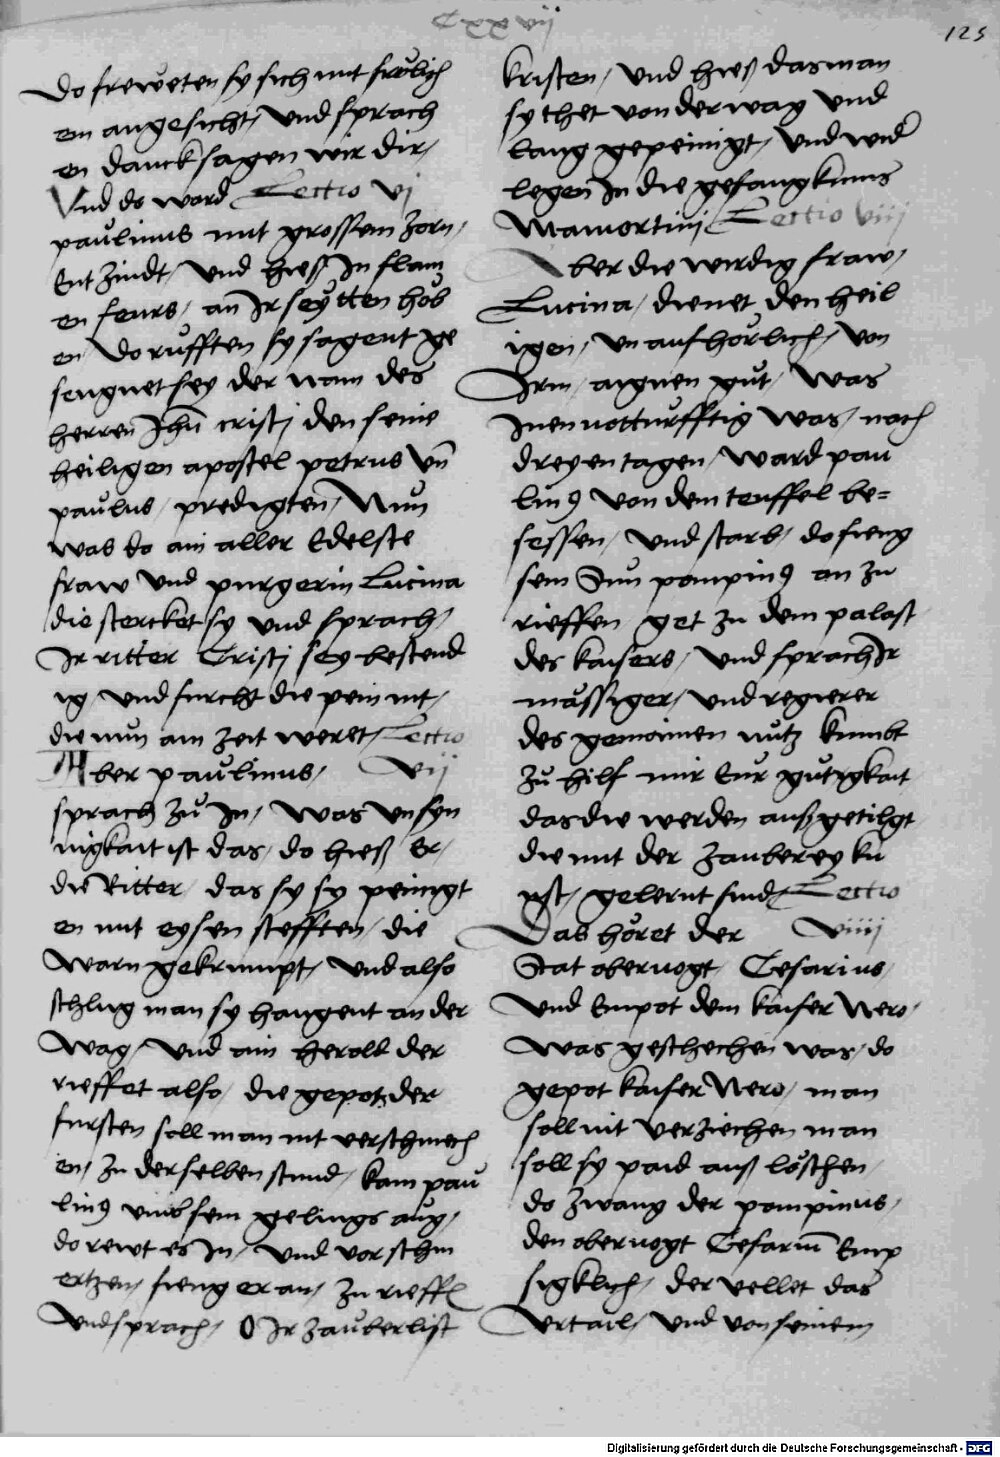 Cxxvij
125
do freweten sy sich mit frölich
em angesicht, Vnd sprach
en danck sagen wir dir,
Vnd do ward Lectio vj
paulinus mit grossem zorn,
Entzindt, Vnd hieß In flam
en feurs, an Ir seytten hob
en, do rufften sy sagent ge
segnet sey der nam des
herren Jhū cristj den seine
heiligen apostel petrus vn̄
paulus, predigten, Nun
was do ain aller Edelste
fraw Vnd purgerin Lucina
die stercket sy vnd sprach,
Ir ritter Cristj sey bestend
ig, vnd furcht die pein nit,
die nun ain zeit weret, Lectio
Aber paulinus, vij
sprach zu In, Was vnsyn
nigkait ist das, do hieß Er,
die Ritter, das sy sy peinigt
en mit eysen stefften, die
warn gekrumpt, Vnd also
schlug man sy hangent an der
wag, Vnd ain herolt der
rieffet also, die gepot der
fursten soll man nit verschmech
en, zu derselben stund, kam pau
linꝰ vmb sein gelings aug,
do rewt es In, Vnd vor schm
ertzen, fieng er an, zu rieffē
Vnd sprach, O Ir zauberlist
kristen, Vnd hieß das man
sy thet von der wag Vnd
lang gepeinigt, Vnd wid̄
legen In die gefangknus
Mamortinj Lectio viij
Aber die wirdig fraw,
Lucina, dienet den heil
igen, vnaufhörlich, von
Irm, aignen gut, Was
Inen notturfftig was, nach
dreyen tagen, Ward pau
linꝰ von dem teuffel be-
sessen, Vnd starb, do fieng
sein Sun pompinꝰ an zu
rieffen get zu dem palast
des kaisers, Vnd sprach Ir
mässiger, vnd regierer
des gemainen nutz kumbt
zu hilf mir Eur gutigkait
das die werden außgetilgt
die mit der zauberey ku
nst, gelernt sind, Lectio
Das höret der viiij
Stat obervogt, Cesarius,
Vnd Empot dem kaiser Nero,
Was geschechen was, do
gepot kaiser Nero, man
soll nit verziechen man
soll sy paid auß löschen,
do zwang der pompinus,
den obervogt Cesariū Emp
sigklich, der vellet das
Vrtail, Vnd von seinem
Digitalisierung gefördert durch die Deutsche Forschungsgemeinschaft - DFG